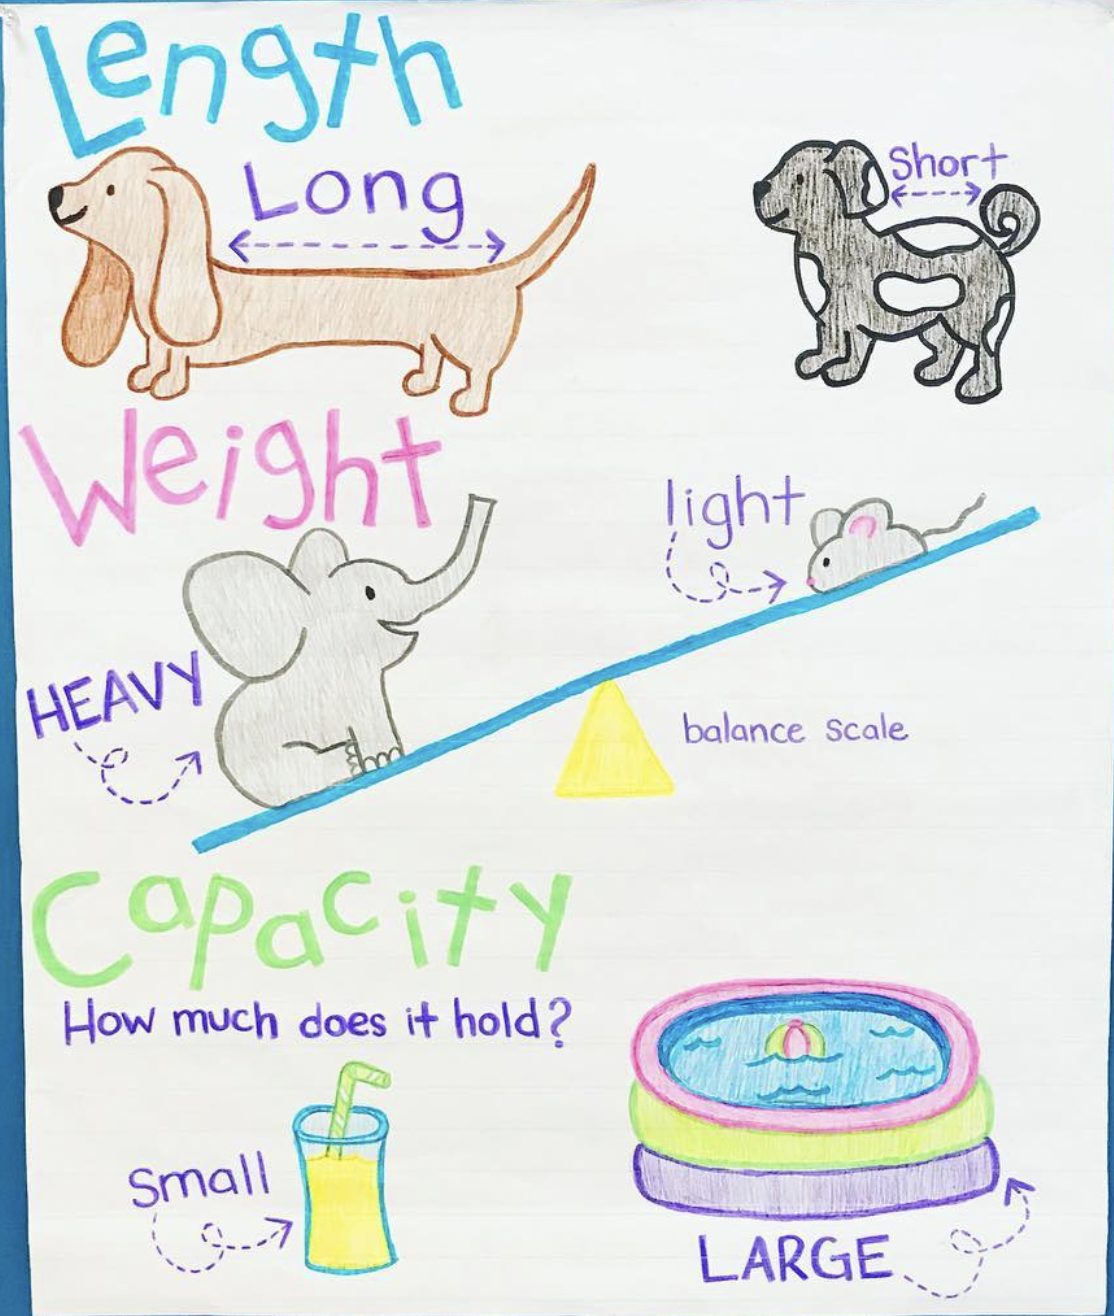 Length
Long
Short
Weight
light
HEAVY
balance scale
Capacity
How much does it hold?
Small
LARGE